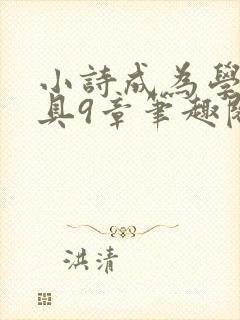 小詩成為學
具9章筆趣閱
洪清